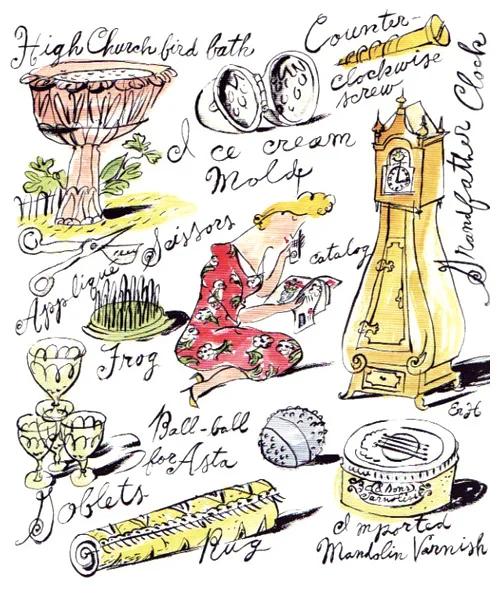 High Church bird bath
Counter-
clockwise
screw
Ice cream
Molds
Grandfather Clock
Appliqué Scissors
catalog
Frog
Ball-ball
for Asta
Goblets
Rug
EnH
& Sons
Imported
Mandolin Varnish